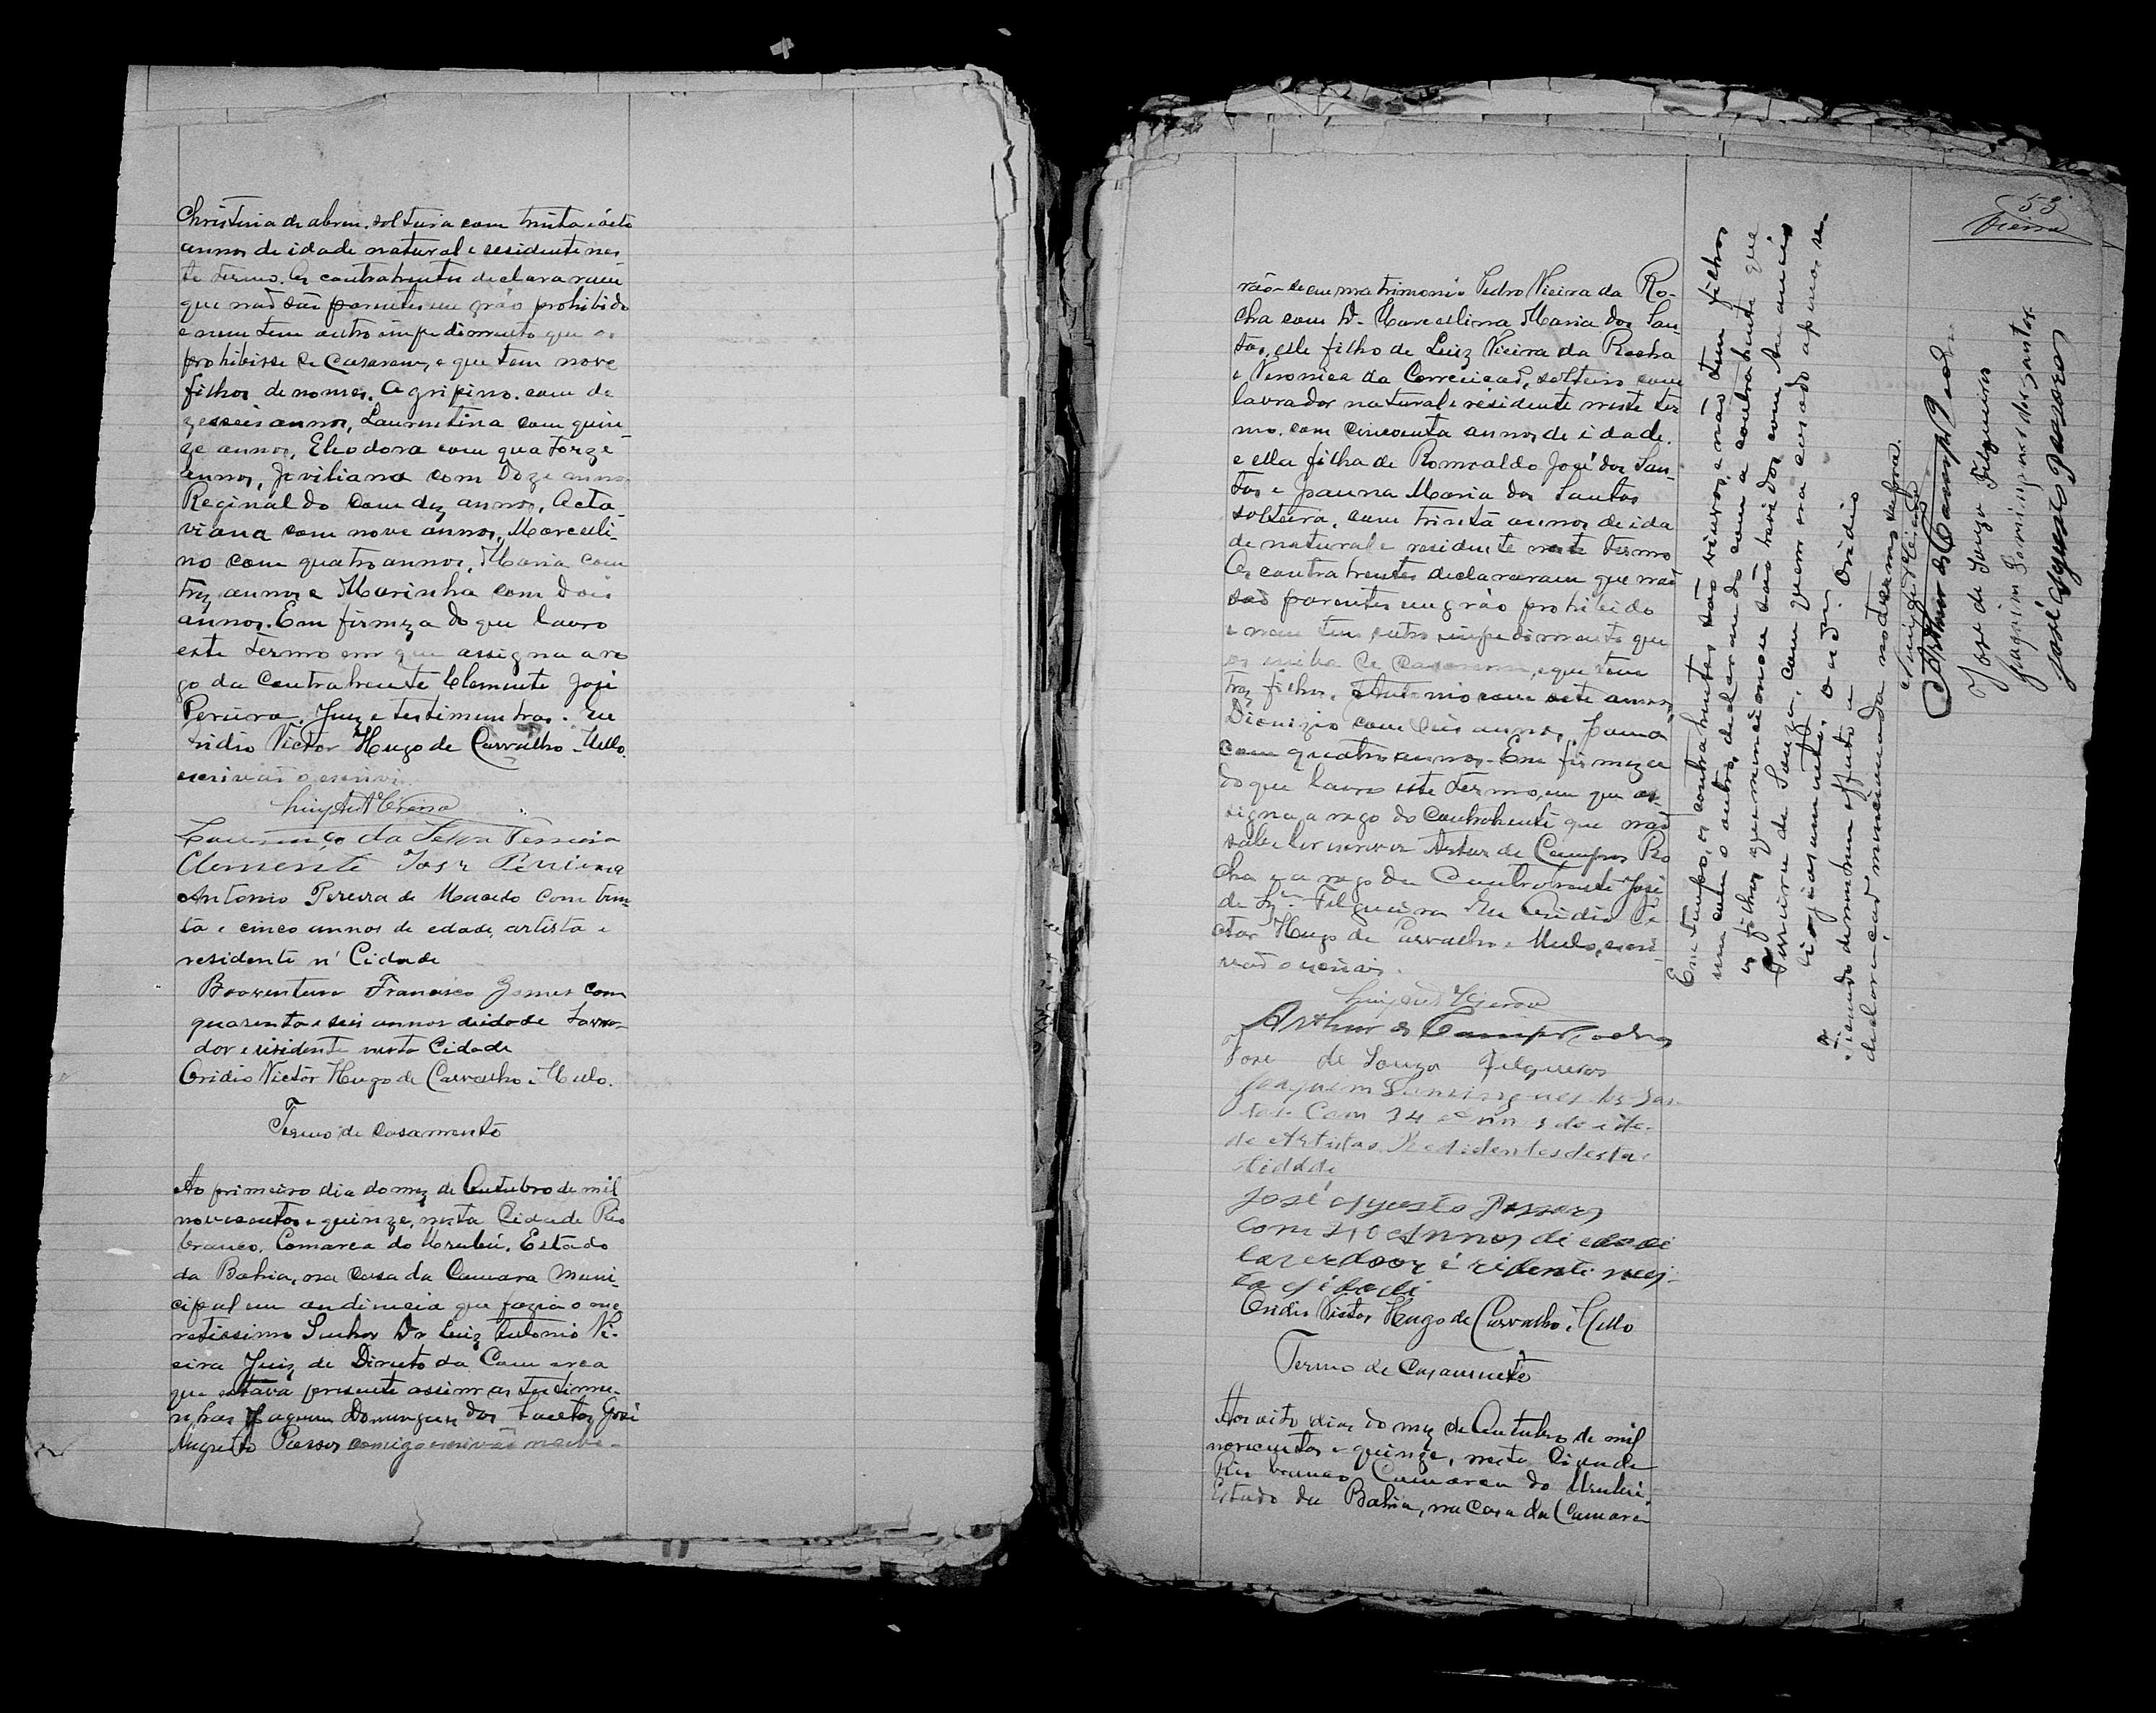 Christina de abreu, solteira com trinta e oito
annos de idade natural e residente nes
te termo. Os contrahentes declararam
que naõ saõ parentes em gráo prohibido
e nem tem outro impedimento que os
prohibisse de casarem, e que tem nove
filhos de nomes. Agripino. com de
zesseis annos, Laurentina com quin
ze annos, Eleodora com quatorze
annos, Joviliana com doze annos
Reginaldo com dez annos, Octa-
viana com nove annos, Marculi-
no com quatro annos, Maria com
trez annos e Marinha com dois
annos. Em firmeza do que lavro
este termo em que assigna a ro
go da Contrahente Clemente José
Pereira. Juiz e testimunhas. Eu
Ovidio Victor Hugo de Carvalho e Mello.
escrivaõ o escrivi
Luiz Antº Vieira
Lourenço da Silva Pereira
Clemente José Pereira
Antonio Pereira de Macedo com trin
ta e cinco annos de edade, artista e
residente n' Cidade
Boaventura Francisco Gomes com
quarenta e seis annos de idade Lavra-
dor e residente nesta Cidade
Ovidio Victor Hugo de Carvalho e Mello.
Termo de Casamento
Ao primeiro dia do mez de Outubro de mil
novecentos e quinze, nesta Cidade Rio
branco. Comarca do Urubú. Estado
da Bahia, na Casa da Camara Muni-
cipal em audiencia que fazia o me
retissimo Senhor Dr Luiz Antonio Vi-
eira Juiz de Direito da Comarca
que estava presente assim as testimu-
nhas Joaquim Domingues dos Santos, José
Augusto Passos comigo escrivaõ recebe-
53
Vieira
rão-se em matrimonio Pedro Vieira da Ro-
cha com D. Marcellina Maria dos San
tos, elle filho de Luiz Vieira da Rocha
e Veronica da Conceicaõ, solteiro com
lavrador natural e residente neste ter
mo. com cincoenta annos de idade.
e ella filha de Romoaldo José dos San-
tos e Joanna Maria dos Santos
solteira, com trinta annos de ida
de natural e residente neste termo
Os contrahentes declararam que naõ
saõ parentes em gráo prohibido
e nem tem outro impedimento que
os casarem, e que tem
trez filhos. Antonio com sete annos,
Dionizio com seis annos, Joana
com quatro annos. Em firmeza
do que lavro este termo, em que as-
signa a rogo do Contrahente que naõ
sabe ler escrever Artur de Campos Ro
cha e a rogo da Contrahente José
de Sza Filgueira Eu Ovidio Vi
ctor Hugo de Carvalho e Mello, escri-
vaõ o escrivi.
Luiz Antº Vieira
Arthur de Campos Rocha
José de Souza Filgueiras
Joaquim Domingues dos San
tos. Com 34 annos de ida-
de Artistas Residentes desta
cidade
José Agusto Passos
com 20 annos di edade
lavrador é ridente nes-
ta cidade
Ovidio Victor Hugo de Carvalho e Mello
Termo de Casamento
Aos oito dias do mez de Outubro de mil
novecentos e quinze, nesta Cidade
Rio branco Comarca do Urubú.
Estado da Bahia, na Casa da Camara
Em tempo, os contrahentes são viuvos, e não tem filhos
um com o outro, declarando com a contrahente que
os filhos que mencionou são havidos com Amancio
Ferreira de Souza, com quem era casado apenas re-
ligiosamente, o
de nenhum effeito a
declaraçaõ mencionada no termo supra.
Luiz Antº Vieira
Arthur de Campos Rocha
José de Souza Filgueiras
Joaquim Domingues dos santos.
José Agusto Passos